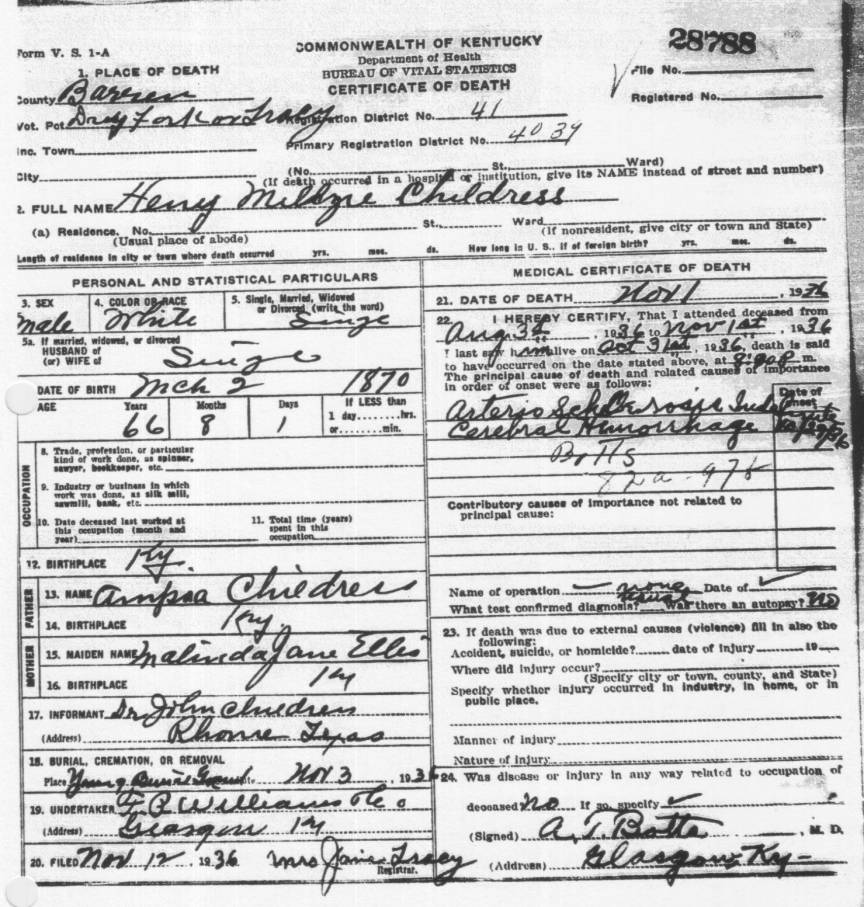 Form V. S. 1-A
COMMONWEALTH OF KENTUCKY
Department of Health
BUREAU OF VITAL STATISTICS
CERTIFICATE OF DEATH
28788
File No.
Registered No.
1. PLACE OF DEATH
County Barren
Vot. Pct. Dry Fork or Tracy Registration District No. 41
Inc. Town Primary Registration District No. 4039
City (No. St., Ward)
(If death occurred in a hospital or institution, give its NAME instead of street and number)
2. FULL NAME Henry Childress
(a) Residence. No. St., Ward
(Usual place of abode) (If nonresident, give city or town and State)
Length of residence in city or town where death occurred yrs. mos. ds. How long in U. S., if of foreign birth? yrs. mos. ds.
PERSONAL AND STATISTICAL PARTICULARS
3. SEX 4. COLOR OR RACE 5. Single, Married, Widowed or Divorced (write the word)
Male White Single
5a. If married, widowed, or divorced
HUSBAND of
(or) WIFE of Single
DATE OF BIRTH Mch 2 1870
AGE Years Months Days If LESS than
66 8 1 1 day........hrs.
or........min.
OCCUPATION
8. Trade, profession, or particular
kind of work done, as spinner,
sawyer, bookkeeper, etc.
9. Industry or business in which
work was done, as silk mill,
sawmill, bank, etc.
10. Date deceased last worked at
this occupation (month and
year)
11. Total time (years)
spent in this
occupation
12. BIRTHPLACE Ky.
FATHER
13. NAME Childress
14. BIRTHPLACE Ky.
MOTHER
15. MAIDEN NAME Malinda Jane Ellis
16. BIRTHPLACE Ky
17. INFORMANT Dr John Childress
(Address) Rhome Texas
18. BURIAL, CREMATION, OR REMOVAL
Place Nov 3 1936
19. UNDERTAKER Williams & Co
(Address) Glasgow Ky
20. FILED Nov 12 1936 Mrs Jane Tracy
Registrar.
MEDICAL CERTIFICATE OF DEATH
21. DATE OF DEATH Nov 1, 1936
22. I HEREBY CERTIFY, That I attended deceased from
Aug 3d, 1936 to Nov 1st, 1936
I last saw him alive on Oct 31st, 1936, death is said
to have occurred on the date stated above, at m.
The principal cause of death and related causes of importance
in order of onset were as follows:
Date of
Onset
Arterio Sclerosis
Cerebral Hemorrhage
Botts
82a-97b
Contributory causes of importance not related to
principal cause:
Name of operation none Date of
What test confirmed diagnosis? usual Was there an autopsy? No
23. If death was due to external causes (violence) fill in also the
following:
Accident, suicide, or homicide? date of injury 19
Where did injury occur?
(Specify city or town, county, and State)
Specify whether injury occurred in industry, in home, or in
public place.
Manner of injury
Nature of injury
24. Was disease or injury in any way related to occupation of
deceased No If so, specify
(Signed) A. T. Botts, M. D.
(Address) Glasgow, Ky-